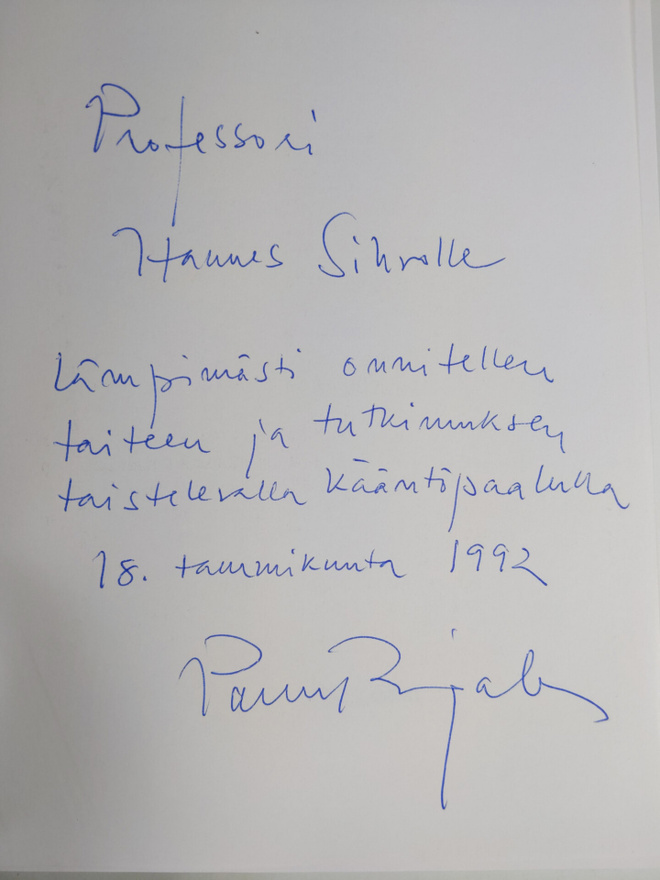 Professori
Hannes Sihvolle
Lämpimästi onnitellen
taiteen ja tutkimuksen
taistelevalla kääntöpaalulla
18. tammikuuta 1992
Panu Rajala